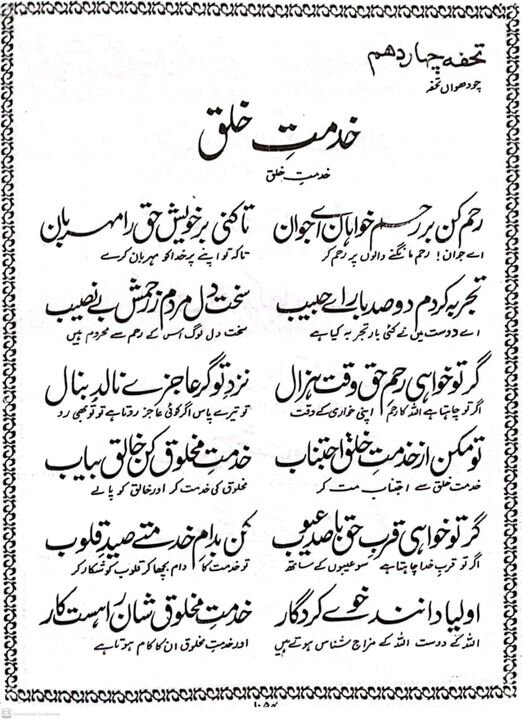 تحفہ چہاردھم
چودھواں تحفہ
خدمتِ خلق
خدمتِ خلق
رحم کن بر رحم خواہاں اے جواں تا کنی بر خویش حق را مہرباں
اے جوان! رحم مانگنے والوں پر رحم کر تاکہ تو اپنے پر خدا کو مہربان کرے
تجربہ کردم دو صد بار اے حبیب سخت دل مردم ز رحمش بے نصیب
اے دوست میں نے کئی بار تجربہ کیا ہے سخت دل لوگ اس کے رحم سے محروم ہیں
گر تو خواہی رحمِ حق وقت ہزال نزدِ تو گر عاجزے نالد بنال
اگر تو چاہتا ہے اللہ کا رحم اپنی خواری کے وقت تو تیرے پاس اگر کوئی عاجز روتا ہے تو تو بھی رو
تو مکن از خدمتِ خلق اجتناب خدمتِ مخلوق کن خالق بیاب
خدمت خلق سے اجتناب مت کر مخلوق کی خدمت کر اور خالق کو پا لے
گر تو خواہی قربِ حق باصد عیوب کن بدامِ خدمتے صیدِ قلوب
اگر تو قربِ خدا چاہتا ہے سو عیبوں کے ساتھ تو خدمت کا دام بچھا کر قلوب کو شکار کر
اولیا دانند خوے کردگار خدمتِ مخلوق شاں را ہست کار
اللہ کے دوست اللہ کے مزاج شناس ہوتے ہیں اور خدمتِ مخلوق ان کا کام ہوتا ہے